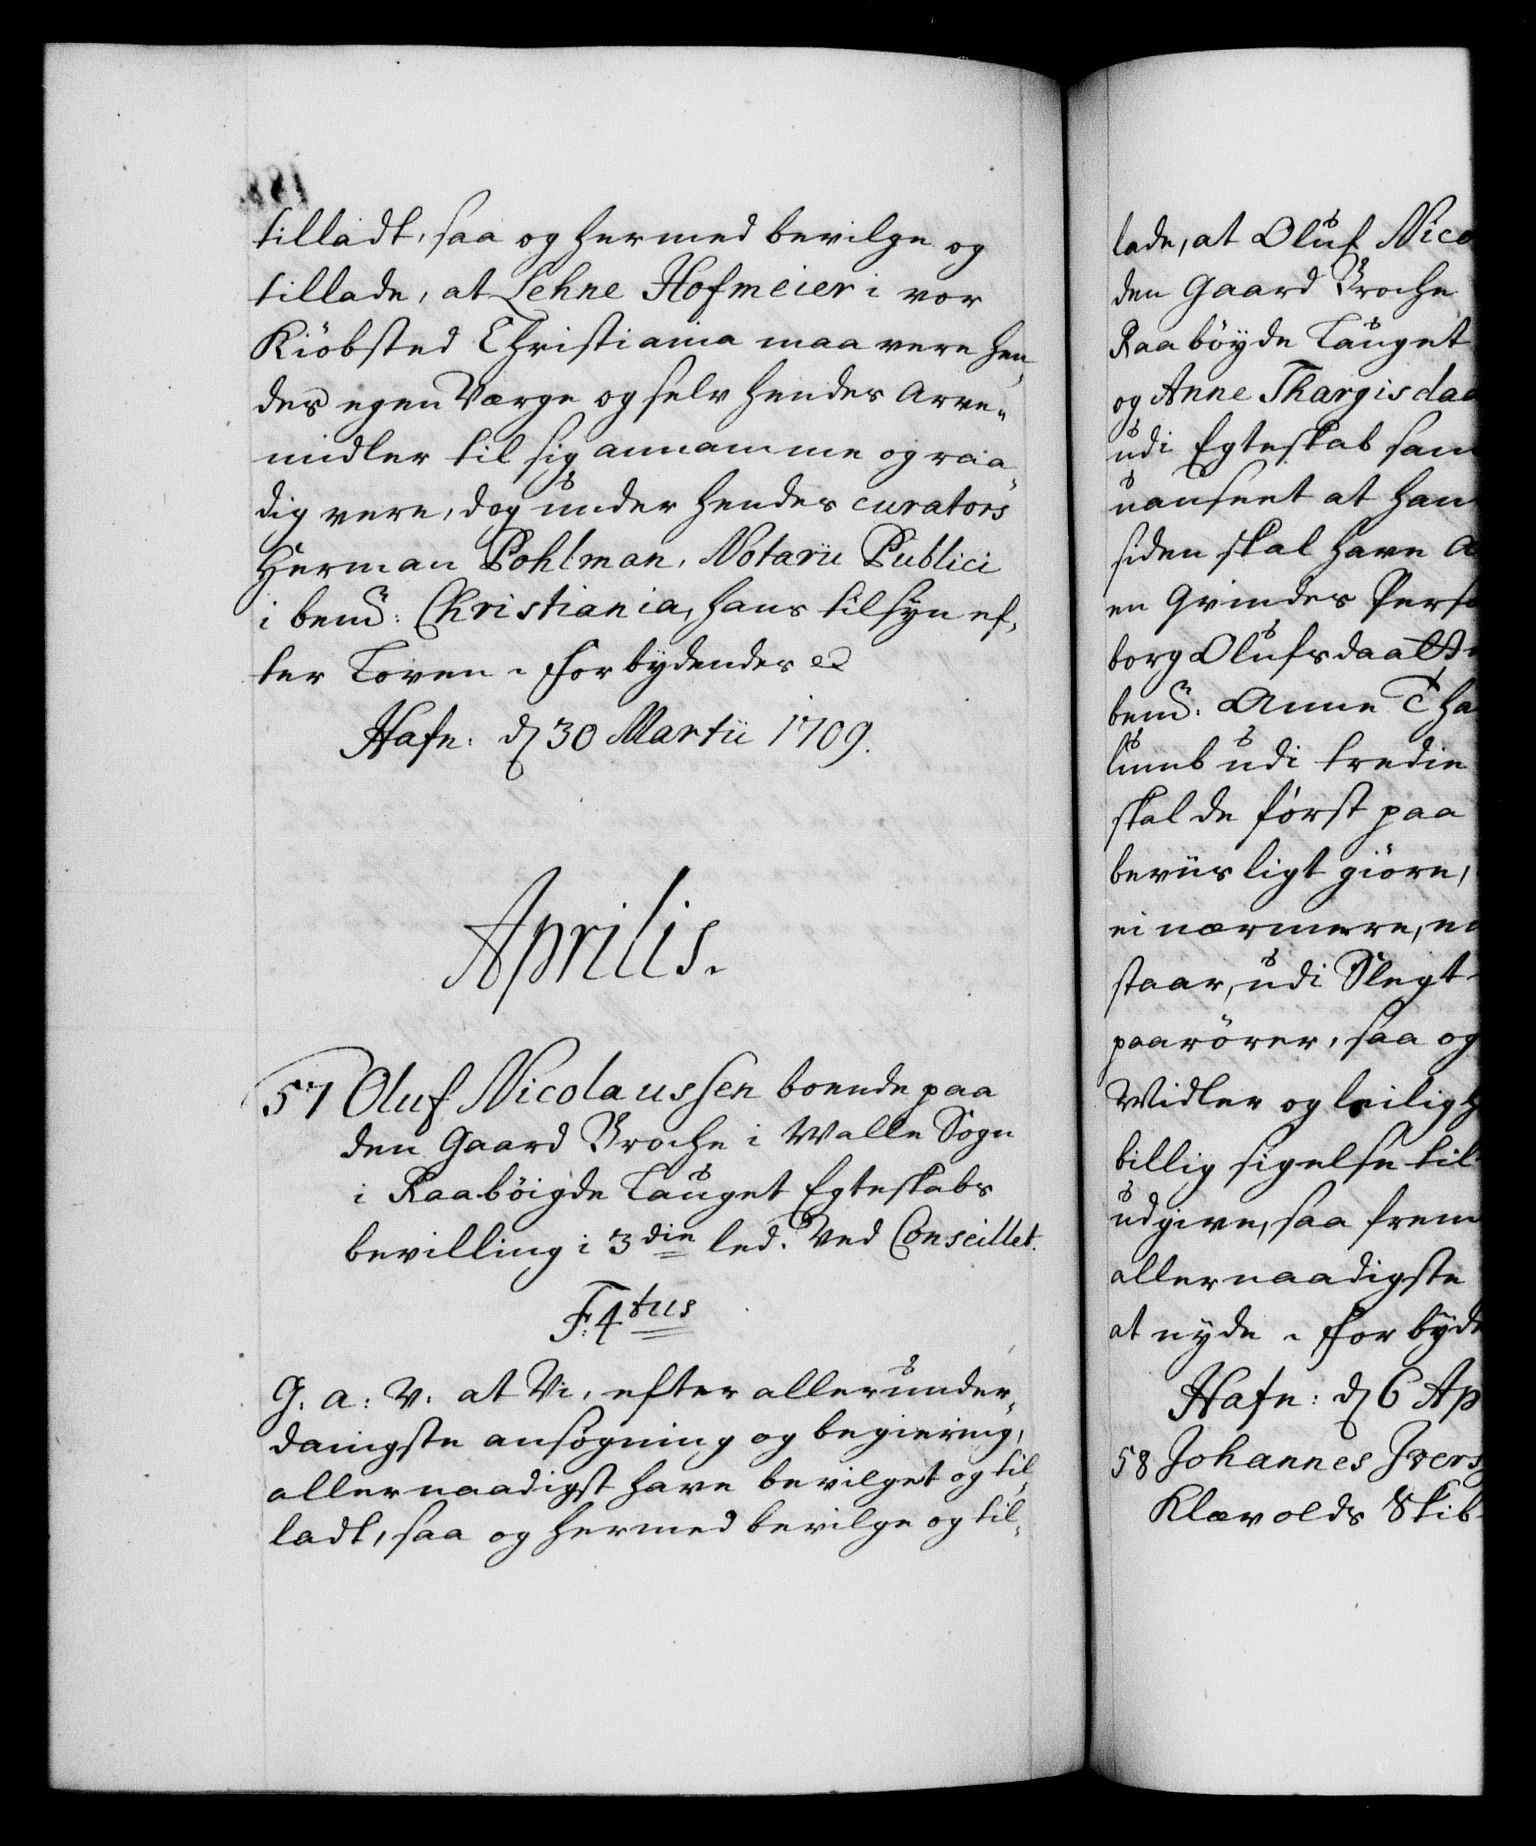 tilladt, saa og hermed bevilge og
tillade, at Lehne Hofmeier i vor
Kiöbsted Christiania maa vere hen,
des egen Værge og selv hendes Arve„
midler til sig annamme og raa„
dig vere, dog under hendes curators
Herman Pohlman, Notarii Publici
i bemd: Christiania, hans tilsyn ef,
ter Loven. Forbydendes
Hafn: d 30 Martii 1709.
Aprilis.
57 Oluf Nicolaussen boende paa
den Gaard Broche i Walle Sogn
i Raaböigde Lauget Egteskabs
bevilling i 3die led. Ved Conseillet.
F: 4tus
G: a: V: at Vi, efter allerunder„
danigste ansögning og begiering,
allernaadigst have bevilget og til„
ladt, saa og hermed bevilge og til„
lade, at Oluf Nico
den Gaard Broche
Raaböyde Lauget
og Anne Thargisdaa
udi Egteskab sam
uanseet at han
siden skal have
en Qvindes Perso
borg Olufsdaatt
bemd: Anne Tha
lumb udi tredie
skal de först paa
beviisligt giöre,
ei nærmere, en
staar, udi Slegt
paarörer, saa og
Midler og leiligh
billig sigelse til
udgive, saa frem
allernaadigste
at nyde. Forbyde
Hafn: d 6 Ap
58 Johannes Ivers
Klævolds Skib